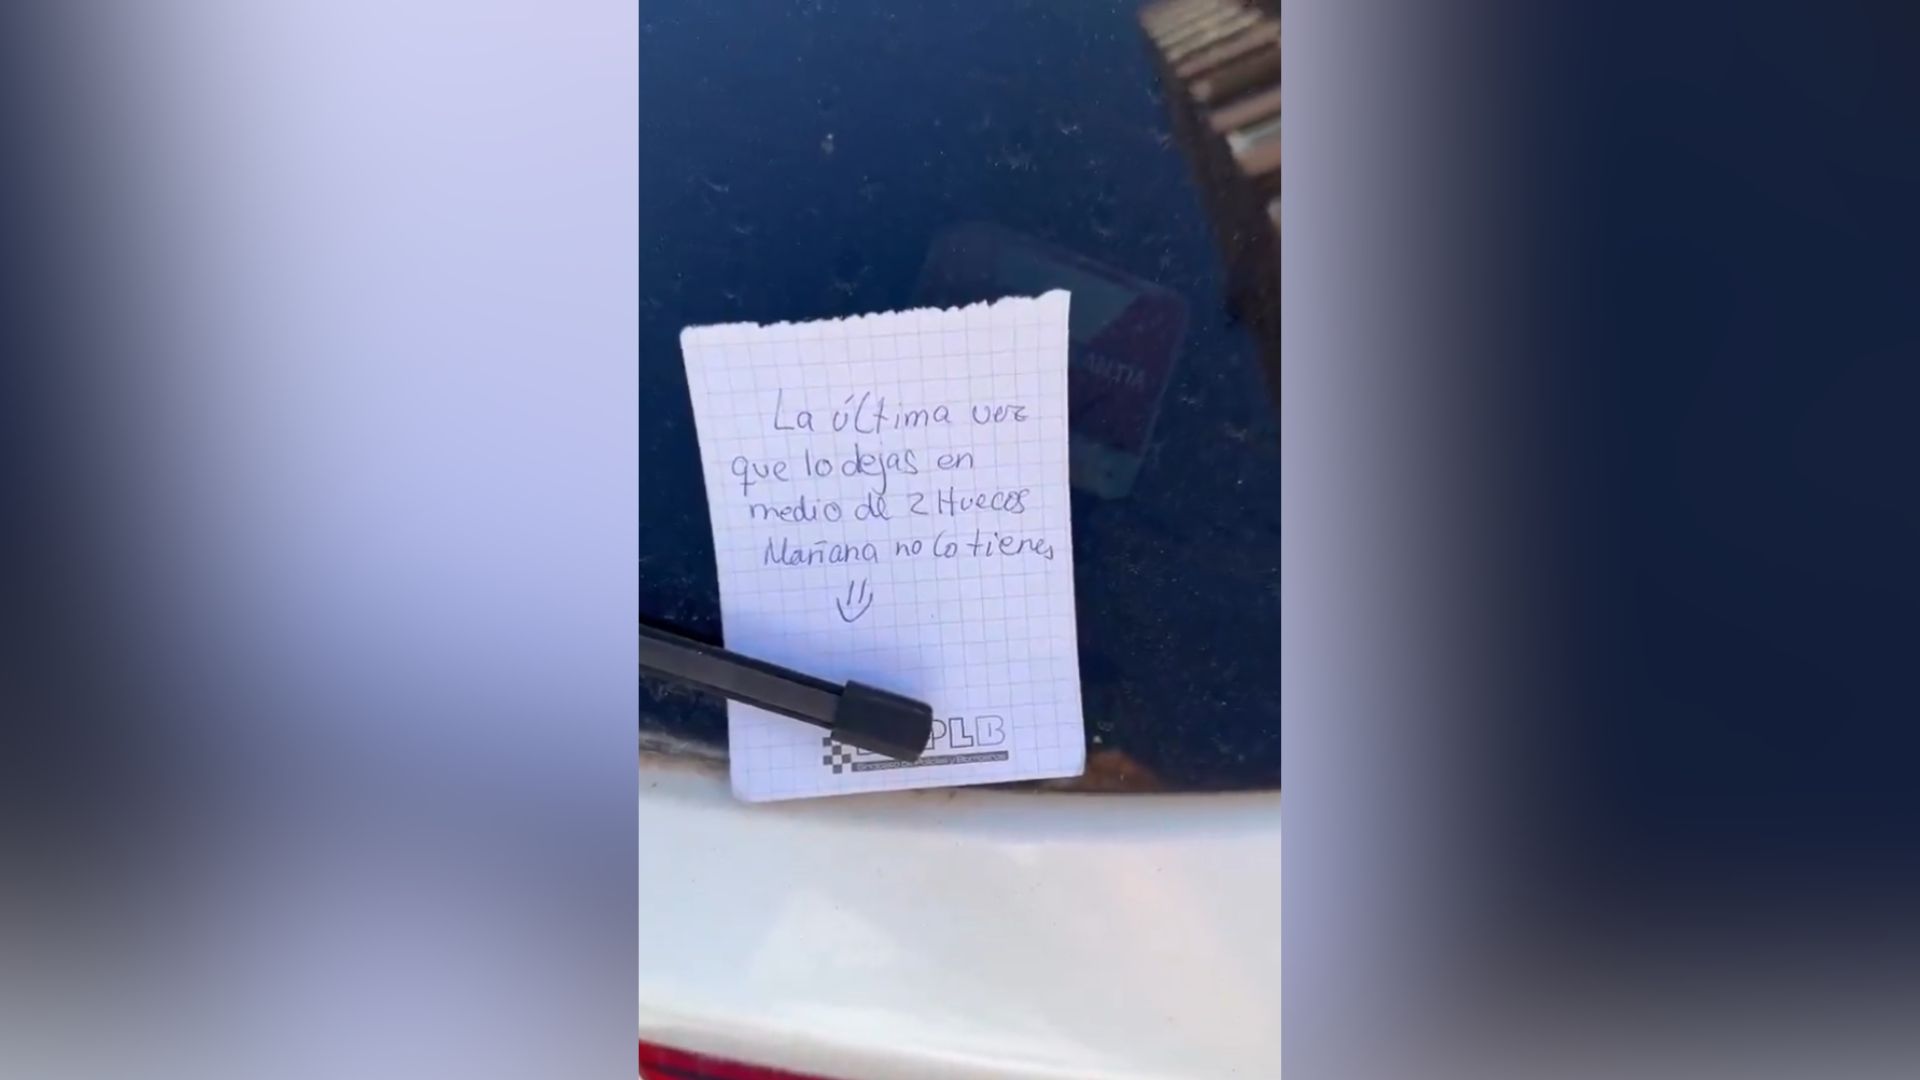 La última vez
que lo dejas en
medio de 2 Huecos
Mañana no lo tienes
PLB
Sindicato de Policías y Bomberos